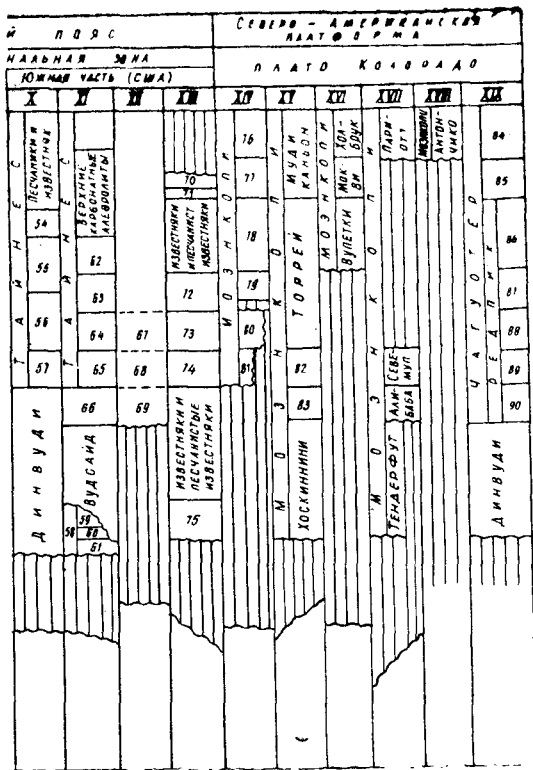 Й ПОЯС
СЕВЕРО-АМЕРИКАНСКАЯ
ПЛАТФОРМА
НАЛЬНАЯ ЗОНА
ЮЖНАЯ ЧАСТЬ (США)
ПЛАТО КОЛОРАДО
X XI XII XIII XIV XV XVI XVII XVIII XIX
ТАЙНЕС
ПЕСЧАНИКИ И
ИЗВЕСТНЯК
54
55
56
57
ДИНВУДИ
ТАЙНЕС
ВЕРХНИЕ
КАРБОНАТНЫЕ
АЛЕВРОЛИТЫ
62
63
64
65
66
ВУДСАЙД
58
59
60
61
67
68
69
70
71
ИЗВЕСТНЯКИ
И ПЕСЧАНИСТ
ИЗВЕСТНЯКИ
72
73
74
ИЗВЕСТНЯКИ И
ПЕСЧАНИСТЫЕ
ИЗВЕСТНЯКИ
75
МОЭНКОПИ
76
77
78
79
80
81
МОЭНКОПИ
МУДИ
КАНЬОН
ТОРРЕЙ
82
83
ХОСКИННИНИ
МОЭНКОПИ
ХОЛ-
БРУК
МОК-
ВИ
ВУПЕТКИ
МОЭНКОПИ
ПАРИ-
ОТТ
СЕВЕ-
МУП
АЛИ-
БАБА
ТЕНДЕРФУТ
МОЭНКОПИ
АНТОН-
ЧИКО
ЧАГУОТЕР
РЕДПИК
84
85
86
87
88
89
90
ДИНВУДИ